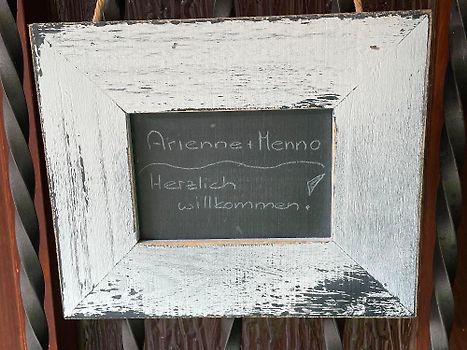 Arienne + Menno
Herzlich
willkommen!